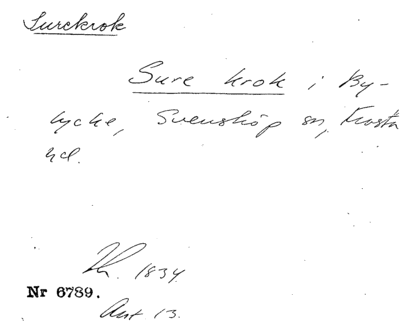 Surckrok
Sure krok i By-
lycke, Svensköp sn, Frosta
hd.
Th. 1834
Nr 6789.
Ant 13.